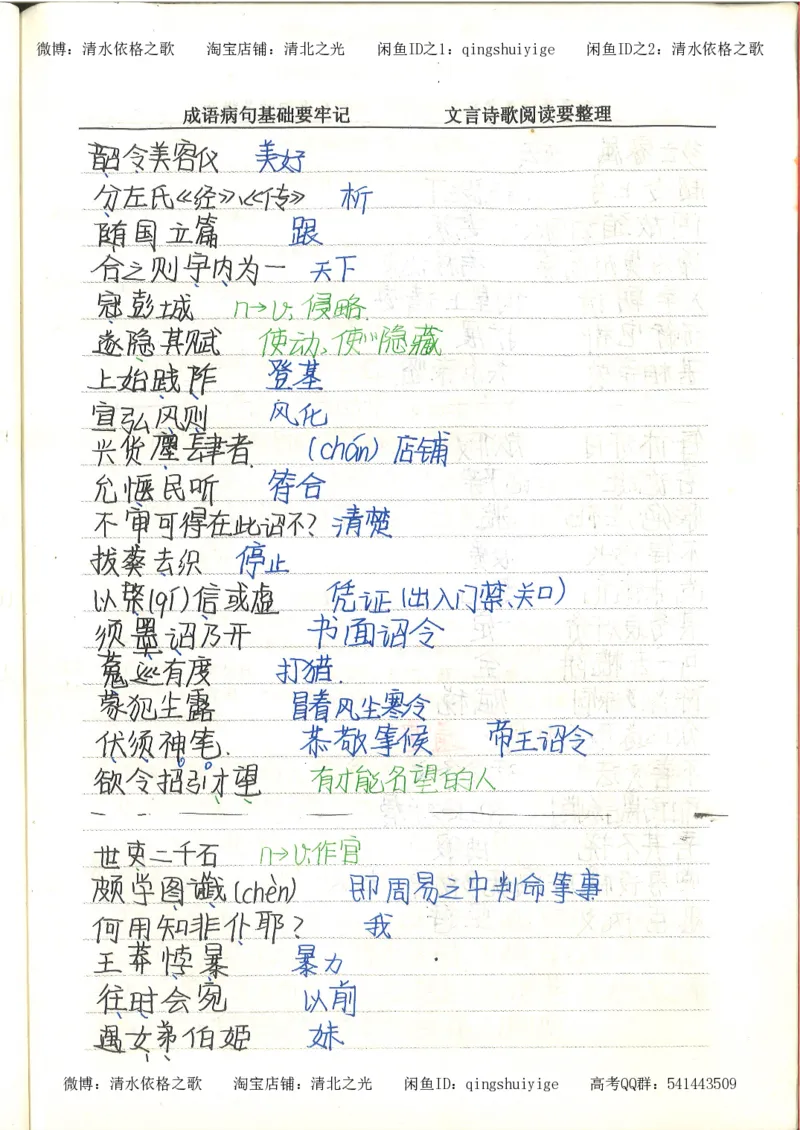 微博：清水依格之歌 淘宝店铺：清北之光 闲鱼ID之1：qingshuiyige 闲鱼ID之2：清水依格之歌
成语病句基础要牢记 文言诗歌阅读要整理
韶令美容仪 美好
分左氏《经》、《传》 析
随国立篇 跟
合之则宇内为一 天下
寇彭城 n→v. 侵略.
遂隐其赋 使动、使""隐藏
上始践阼 登基
宣弘风则 风化
兴货廛肆者. (chán) 店铺
允惬民听 符合
不审可得在此诏不？ 清楚
拔葵去织 停止
以棨(qǐ)信或虚 凭证(出入门禁、关口)
须墨诏乃开 书面诏令
蒐巡有度 打猎.
蒙犯尘露 冒着风尘寒令
伏须神笔. 恭敬等候 帝王诏令
欲令招引才望 有才能名望的人
世吏二千石 n→v.作官
颇学图谶(chèn) 即周易之中判命等事
何用知非仆耶？ 我
王莽悖暴 暴力
往时会宛 以前
遇女弟伯姬 妹
微博：清水依格之歌 淘宝店铺：清北之光 闲鱼ID：qingshuiyige 高考QQ群：541443509